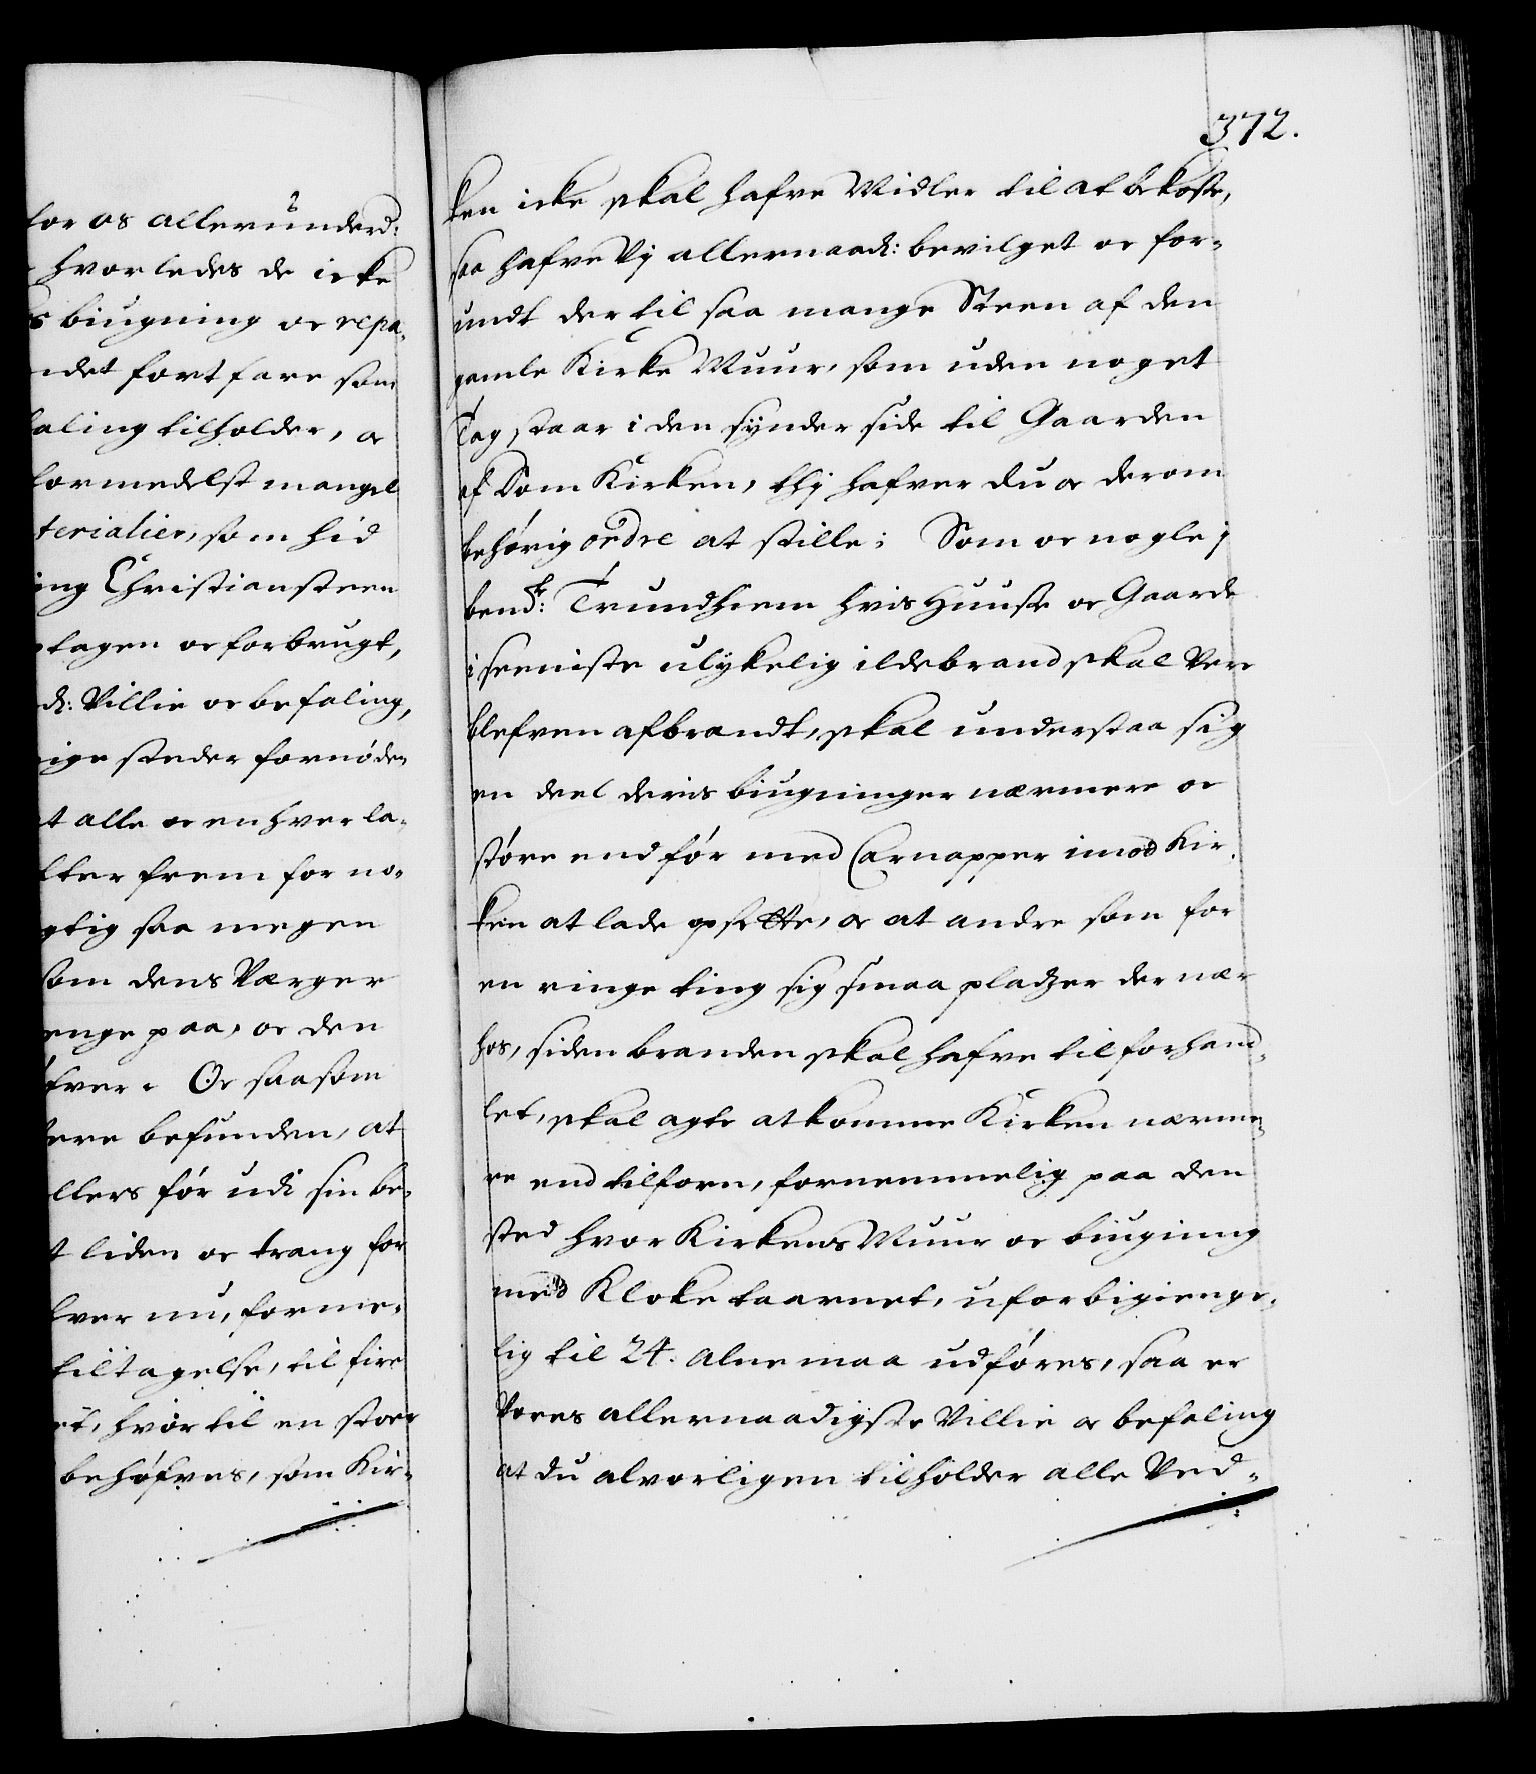 for os allerunderd:
hvorledes de icke
s biugning oc repa-
ndet fortfare som
aling tilholder, oc
formedelst mangel
terialier, som hid
ing Christiansteen
tagen oc forbrugt,
d: Villie oc befaling,
ige steder fornöden
t alle oc en hver la-
tter frem for no-
gtig saa megen
som dens Værger
enge paa, oc den
fver. Oc saasom
ere befunden, at
llers för udi sin be-
t liden oc trang for
lver nu, forme-
tiltagelse, til fire
et, hvortil en stoer
behöfves, som Kir-
372.
ken icke skal hafve Midler til at bekoste,
saa hafve Vj allernaad: bevilget oc for-
undt der til saa mange Steen af den
gamle Kirke Muur, som uden noget
Tag staar i den synder side til Gaarden
af Dom Kirken, thj hafver du oc derom
behörig ordre at stille; Som oc nogle j
bend: Trundhiem hvis Huuse oc Gaarde
i seeniste ulykelig ildebrand skal Vere
blefven afbrandt, skal understaa sig
en deel deris biugninger nærmere oc
störe end för med Carnapper imod Kir-
ken at lade opsette, oc at andre som for
en ringe ting sig smaa pladzer der nær
hos, siden branden skal hafve tilforhand-
let, skal agte at komme Kirken nærme-
re end tilforn, fornemmelig paa den
sted hvor Kirkens Muur oc biugning
med Kloke taarnet, uforbigienge-
lig til 24. Alne maa udföres, saa er
Vores allernaadigste Villie oc befaling
at du alvorligen tilholder alle Ved-